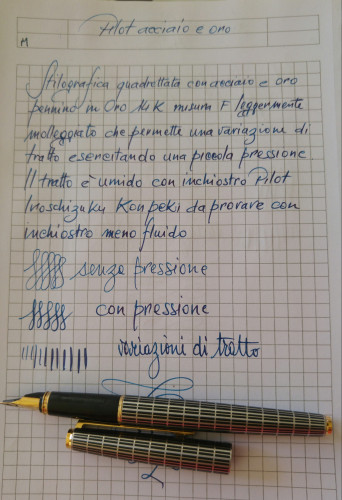 Pilot acciaio e oro
M
Stilografica quadrettata con acciaio e oro
pennino in Oro 14K misura F leggermente
molleggiato che permette una variazione di
tratto esercitando una piccola pressione.
Il tratto è umido con inchiostro Pilot
Iroshizuku Kon peki da provare con
inchiostro meno fluido
senza pressione
con pressione
variazioni di tratto